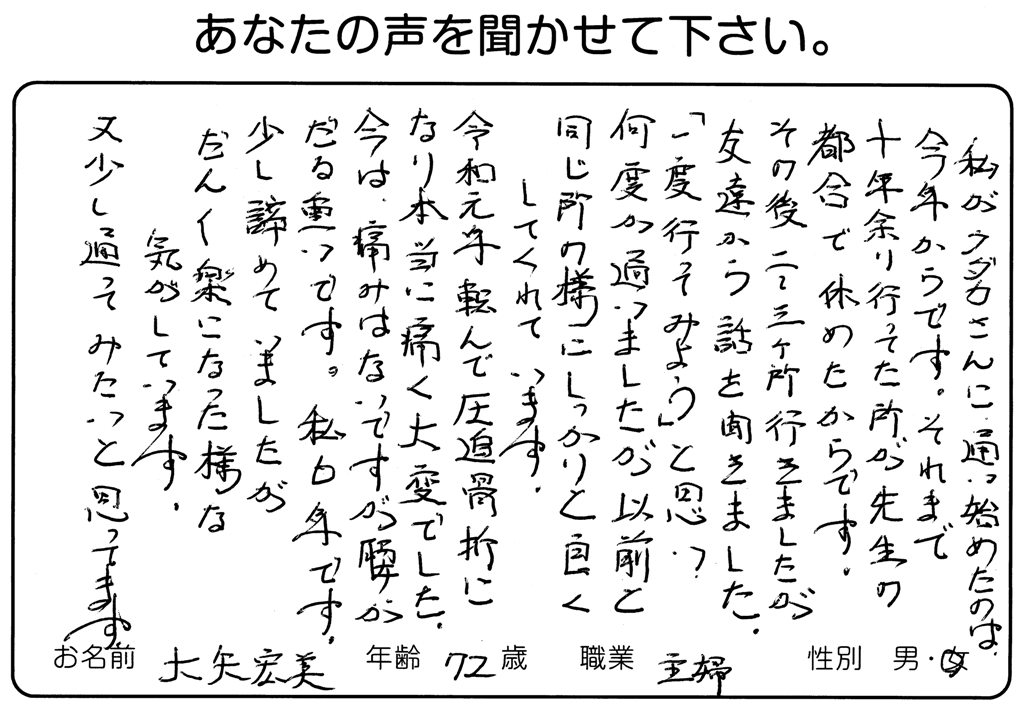 あなたの声を聞かせて下さい。
私がウダカさんに通い始めたのは、
今年からです。それまで
十年余り行ってた所が先生の
都合で休めたからです。
その後二~三ヶ所行きましたが
友達から話を聞きました。
「一度行ってみよう」と思い、
何度か通いましたが以前と
同じ所の様にしっかりと良く
してくれています。
令和元年転んで圧迫骨折に
なり本当に痛く大変でした。
今は、痛みはないですが腰が
だる重いです。私も年です。
少し諦めていましたが
だんだん楽になった様な
気がしています。
又少し通ってみたいと思ってます。
お名前 大矢宏美 年齢 72歳 職業 主婦 性別 男・女